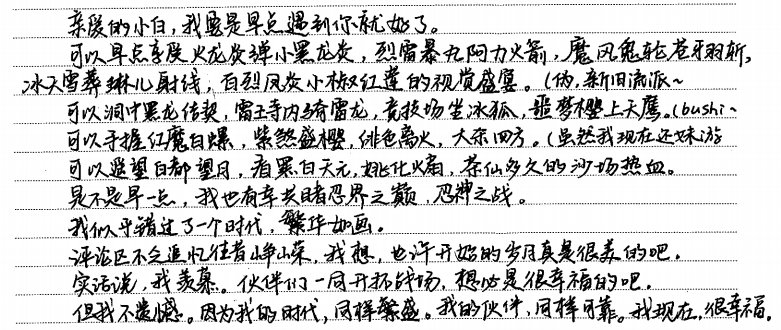 亲爱的小白,我要是早点遇到你就好了。
可以早点享受火龙炎弹小黑龙炎,烈雷暴丸阿力火箭,魔风鬼轮苍羽斩,
冰天雪葬琳儿射线,百烈风炎小椒红莲的视觉盛宴。(伪,新旧流派~
可以洞中黑龙传契,雷王寺内骑雷龙,竞技场坐冰狐,噩梦樱上天鹰。(bushi~
可以手握红魔白螺,紫煞盛樱,绯色离火,大杀四方。(虽然我现在还妹游
可以遥望白都望月,看黑白天元,姚化火扇,茶仙多久的沙场热血。
是不是早一点,我也有幸共睹忍界之巅,忍神之战。
我似乎错过了一个时代,繁华如画。
评论区不乏追忆往昔峥嵘,我想,也许开始的岁月真是很美的吧。
实话说,我羡慕。伙伴们一同开拓战场,想必是很幸福的吧。
但我不遗憾。因为我的时代,同样繁盛。我的伙伴,同样可靠。我现在,很幸福。